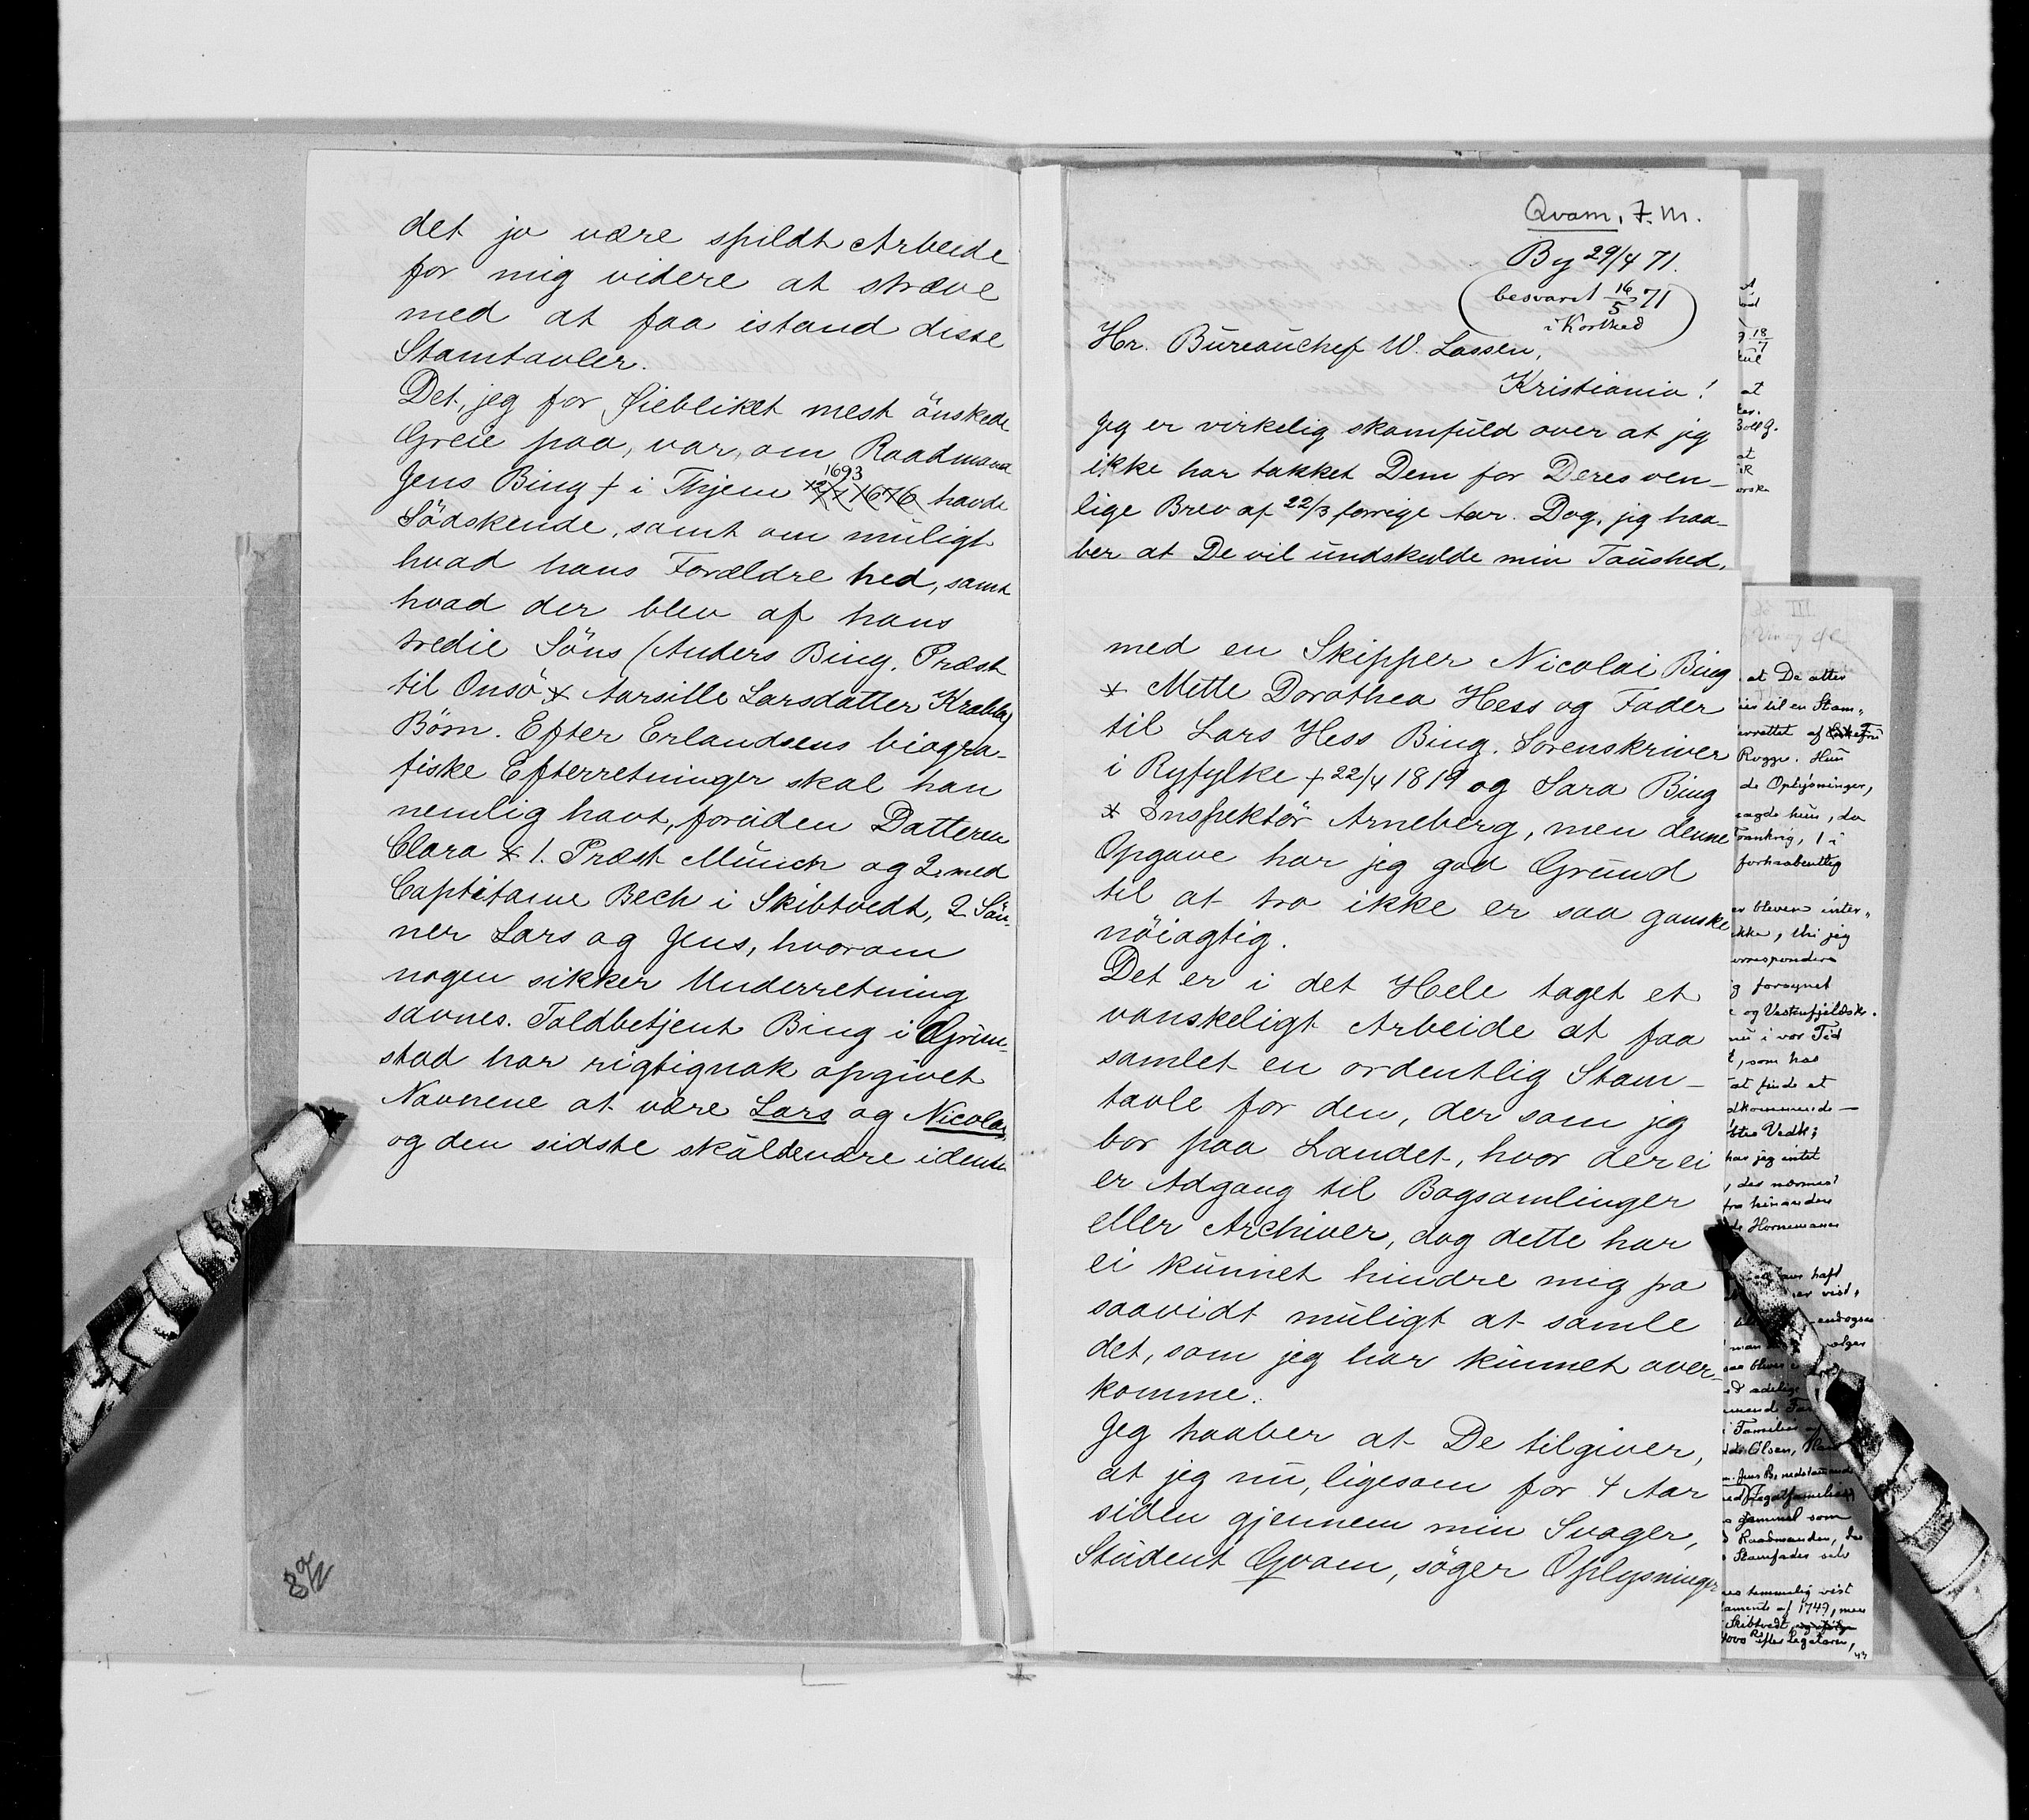 det jo være spildt Arbeide
for mig videre at stræve
med at faa istand disse
Stamtavler.
Det, jeg for Øiebliket mest önskede
Greie paa, var, om Raadmand
Jens Bing † i Thjem 1693 havde
Södskende, samt om muligt
hvad hans Forældre hed, samt
hvad der blev af hans
tredie Söns (Anders Bing. Præst
til Onsö * Aarsille Larsdatter Krabbe)
Börn. Efter Erlandsens biogra-
fiske Efterretninger skal han
nemlig havt, foruden Datteren
Clara * 1. Præst Münch og 2. med
Capitaine Bech i Skibtvedt, 2 Sön-
ner Lars og Jens, hvorom
nogen sikker Underretning
savnes. Toldbetjent Bing i Grim-
stad har rigtignok opgivet
Navnene at være Lars og Nicolai,
og den sidste skulde være identisk
82
Qvam, F. M.
By 29/4 71.
(besvaret 16/5 71
i Korthed)
Hr. Bureauchef W. Lassen,
Kristiania!
Jeg er virkelig skamfuld over at jeg
ikke har takket Dem for Deres ven-
lige Brev af 22/3 forrige Aar. Dog, jeg haa-
ber at De vil undskylde min Taushed.
med en Skipper Nicolai Bing
* Mette Dorothea Hess og Fader
til Lars Hess Bing. Sorenskriver
i Ryfylke † 22/4 1819 og Sara Bing
* Inspektör Arneberg, men denne
Opgave har jeg god Grund
til at tro ikke er saa ganske
nöiagtig.
Det er i det Hele taget et
vanskeligt Arbeide at faa
samlet en ordentlig Stam-
tavle for den, der som jeg
bor paa Landet, hvor der ei
er Adgang til Bogsamlinger
eller Archiver, dog dette har
ei kunnet hindre mig fra
saavidt muligt at samle
det, som jeg har kunnet over-
komme.
Jeg haaber at De tilgiver,
at jeg nu, ligesom for 4 Aar
siden gjennem min Svager,
Student Qvam, söger Oplysninger
at De atter
til en Stam-
Rogge. Hun
de Oplysninger,
sagde hun, da
forhaabentlig
er bleven inter-
ikke, thi jeg
og Vestenfjeldsk.
nu i vor Tid
, som har
at finde et
har jeg intet
fra hinanden
Hornemanns
haft
er vist,
endogsaa
Familie
Olsen,
Jens B, nedstammende
gammel som
Raadmanden, der
Stamfader selv
temmelig vist
af 1749, men
Skibtvedt
efter Legatoren,